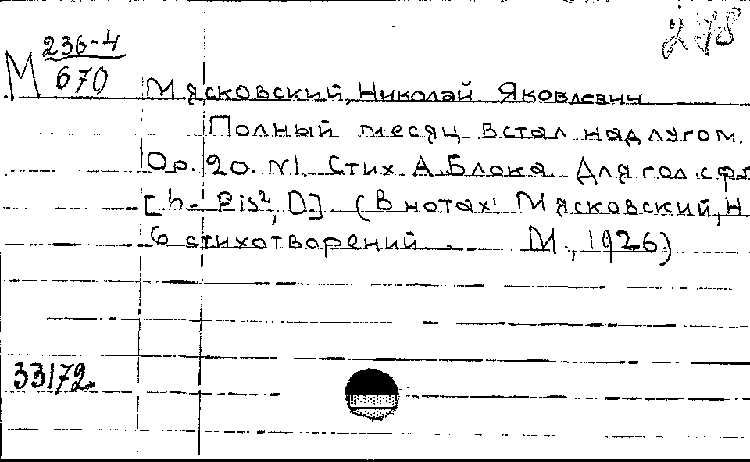 278
М 236-4
670
Мясковский, Николай Яковлевич
Полный месяц встал над лугом.
Op. 20. N1. Стих. А. Блока. Для гол. с фп
[h - eis², D.]. (В нотах: Мясковский, Н
6 стихотворений ... М., 1926)
33172